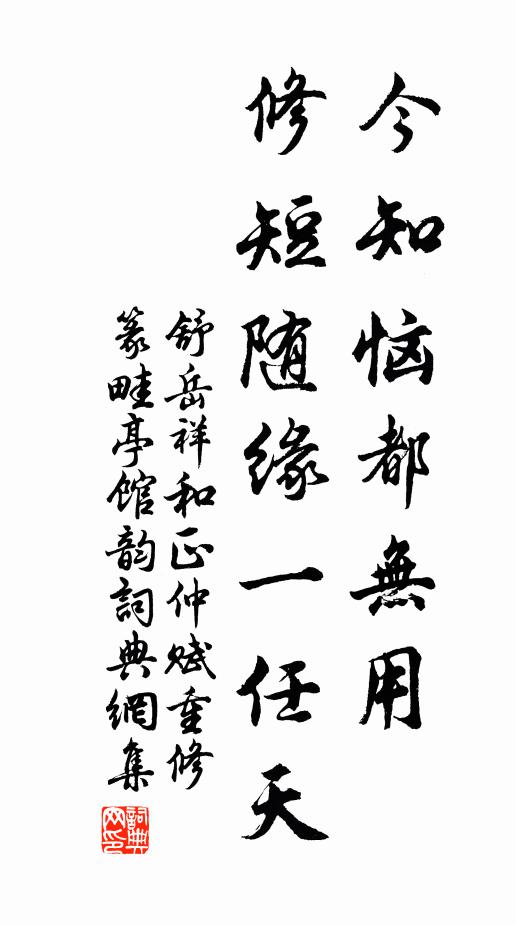 今知恼都無用
修短随缘一任天
舒岳祥和正仲赋重修
篆畦亭馆韵詞典網集
詞典
网印